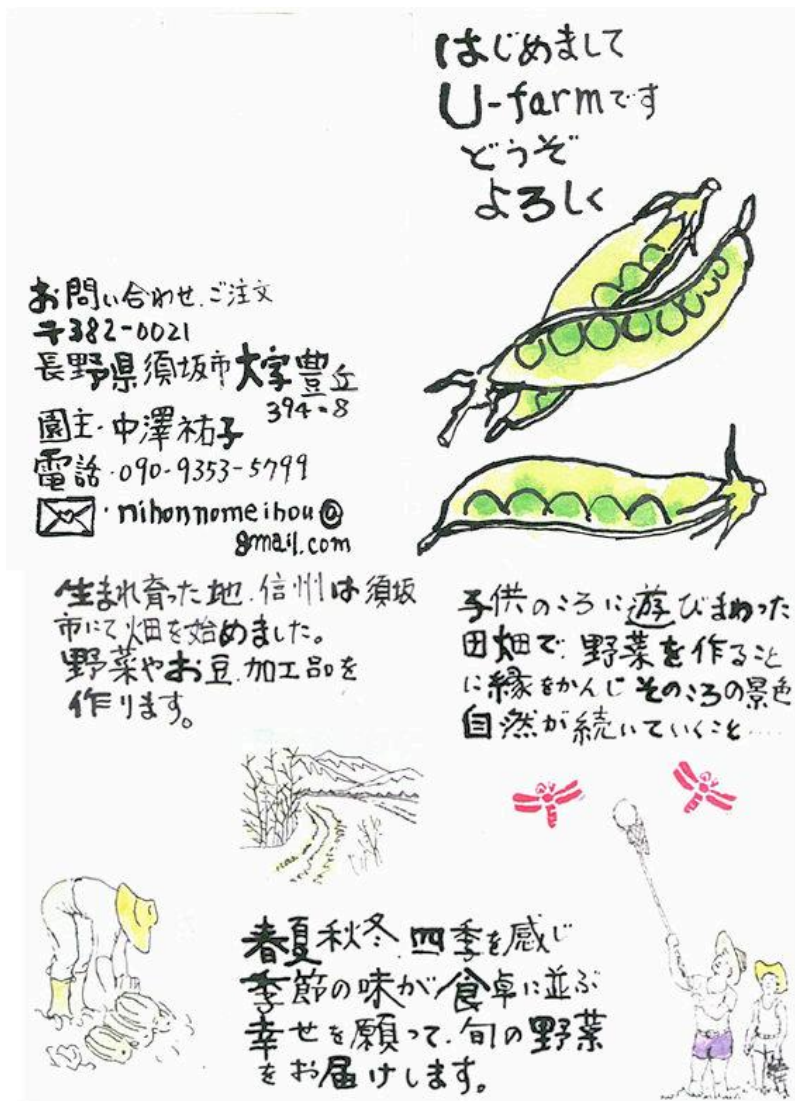 はじめまして
U-farmです
どうぞ
よろしく
お問い合わせ.ご注文
〒382-0021
長野県須坂市大字豊丘
394-8
園主・中澤祐子
電話・090-9353-5799
・nihonnomeihou@
gmail.com
生まれ育った地.信州は須坂
市にて畑を始めました。
野菜やお豆.加工品を
作ります。
子供のころに遊びまわった
田畑で.野菜を作ること
に縁をかんじそのころの景色
自然が続いていくこと....
春夏秋冬.四季を感じ
季節の味が食卓に並ぶ
幸せを願って.旬の野菜
をお届けします。